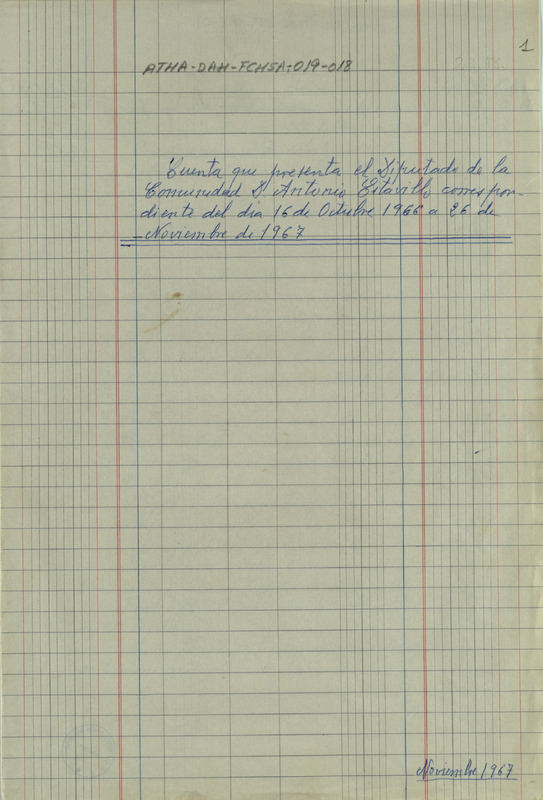 1
ATHA-DAH-FCHSA-019-018
Cuenta que presenta el Diputado de la
Comunidad D. Antonio Estavillo correspon-
diente del dia 16 de Octubre 1966 a 26 de
Noviembre de 1967
Noviembre 1967